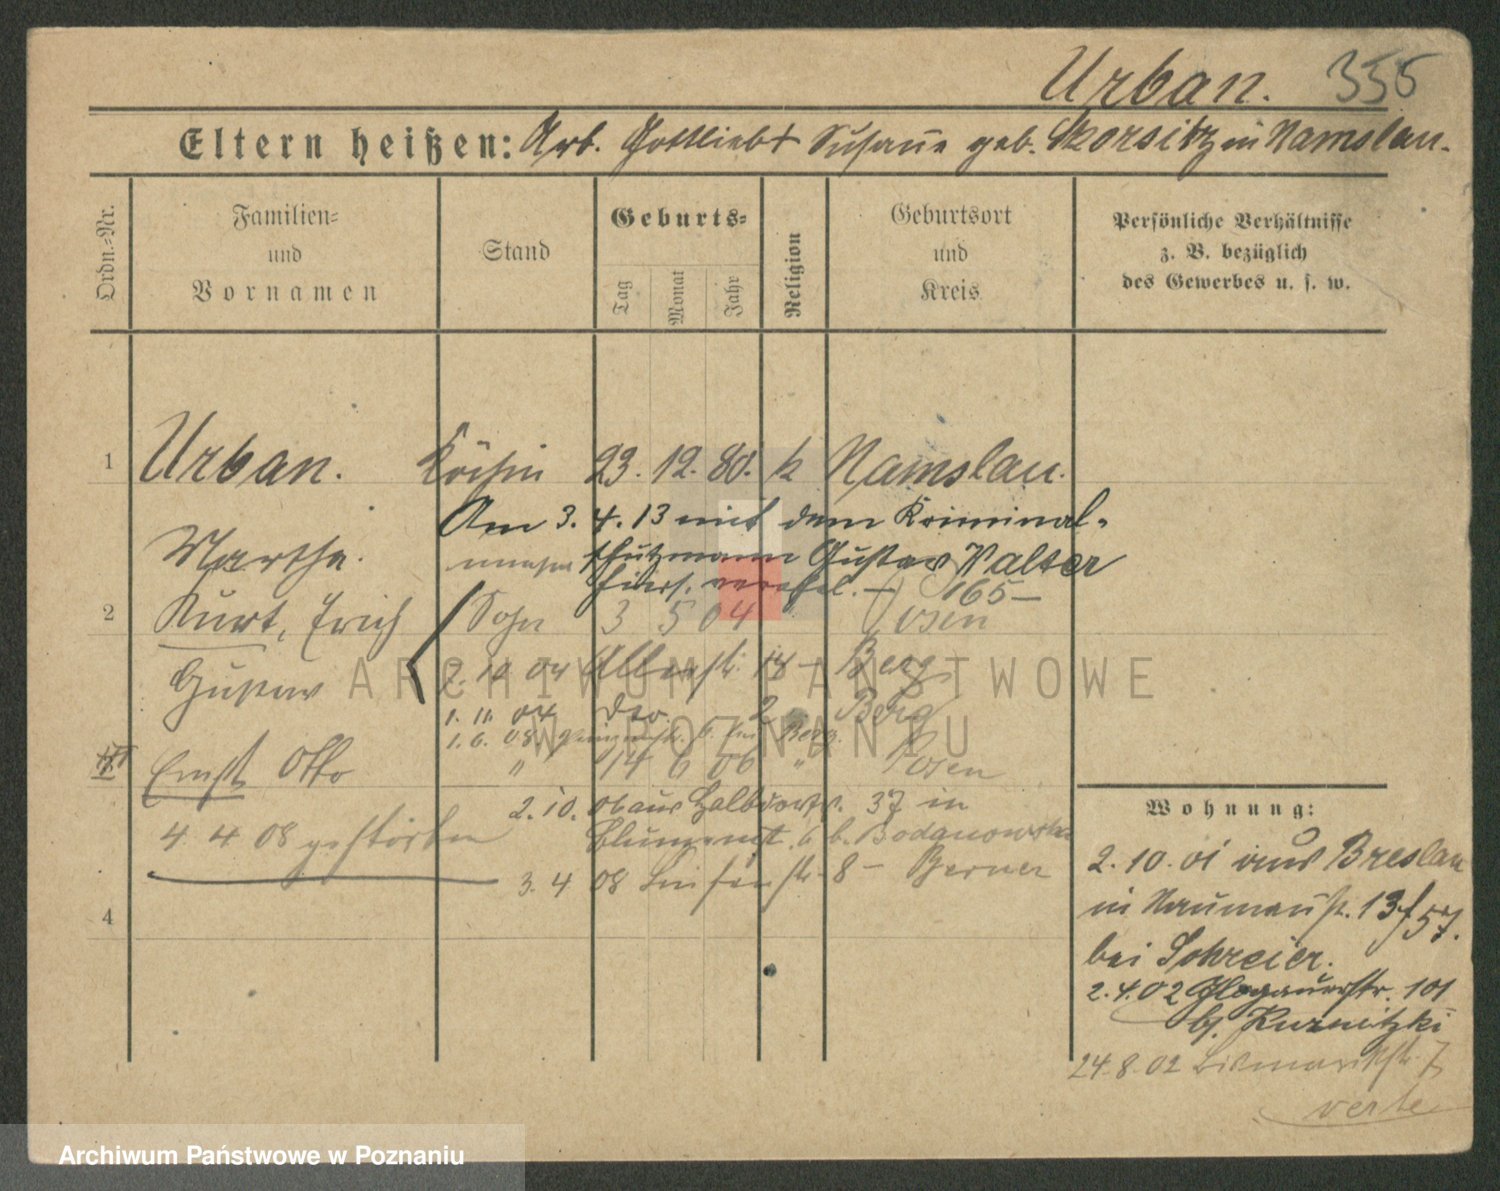 Urban. 355
Eltern heißen: Arb. Gottlieb + Susane geb. Skorsitz in Namslau.
Ordn.-Nr.
Familien-
und
Vornamen
Stand
Geburts-
Tag
Monat
Jahr
Religion
Geburtsort
und
Kreis
Persönliche Verhältnisse
z. B. bezüglich
des Gewerbes u. s. w.
1 Urban. Köchin 23. 12. 80. k Namslau.
Martha.
Am 3. 4. 13 mit dem Kriminal-
schutzmann Gustav Walter
hiers. verehel. — 165 —
2 Kurt, Erich Sohn 3 5 04 Posen
Gustav
2. 10 04 18 - Berg
1. 11. 04 dto. 2 Berg
1. 6. 08 6. bei Berg.
Ernst Otto " 14 6 06 " Posen
4 4 08 gestorben
2. 10. 06 aus Halbdorfstr. 37 in
Blumenst. 6 b. Bodanowska
3. 4 08 8 - Berner
4
Wohnung:
2. 10. 01 aus Breslau
in Naumanstr. 13 f 57.
bei Schreier.
2. 4. 02 Glogauerstr. 101
bj. Kurnitzki
24. 8. 02 Bismarkstr. 7
verte
ARCHIWUM PAŃSTWOWE
W POZNANIU
Archiwum Państwowe w Poznaniu